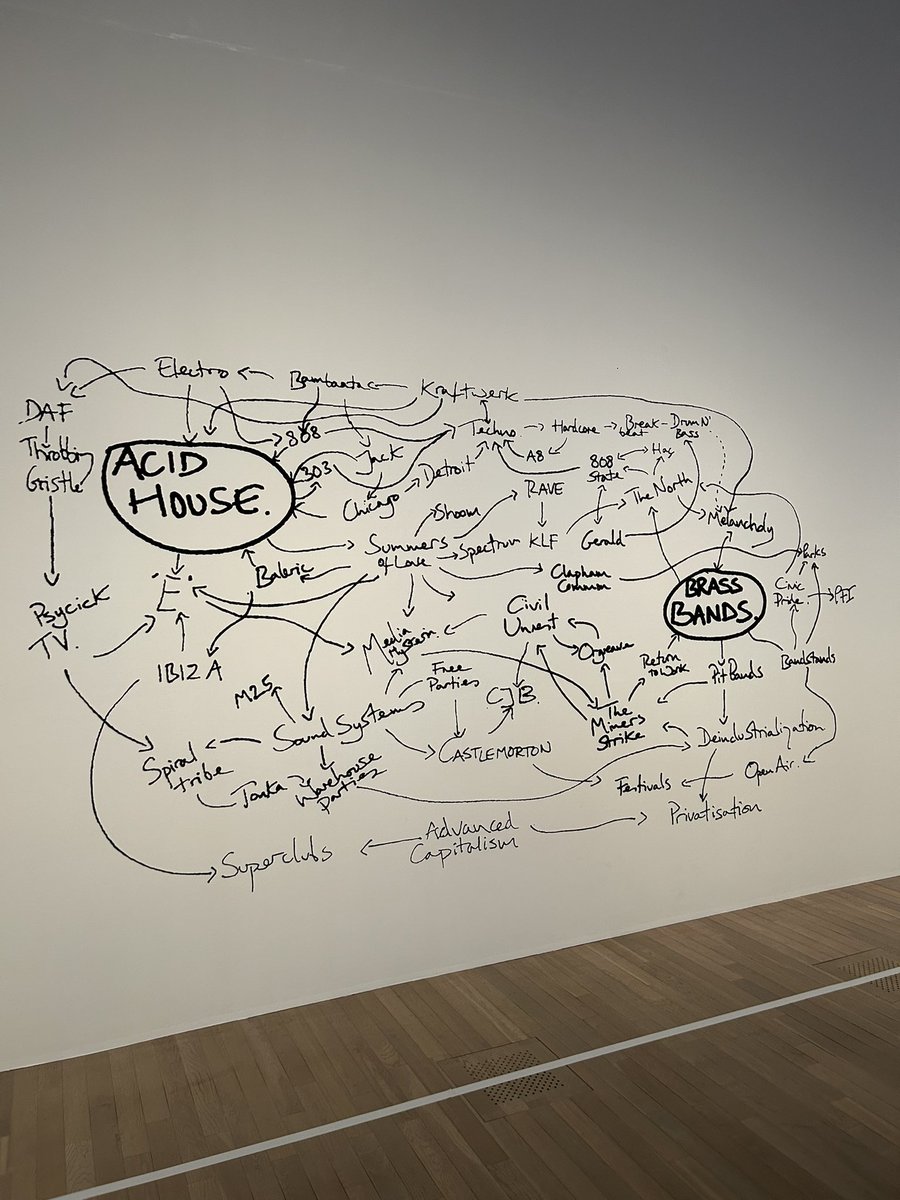 Electro
Bambaataa
Kraftwerk
DAF
Throbbing
Gristle
ACID
HOUSE.
808
303
Jack
Chicago
Detroit
Techno
Hardcore
Break-
beat
Drum N'
Bass
A8
808
State
RAVE
The North
Melancholy
Shoom
Summers
of Love
Spectrum
KLF
Gerald
Baleric
Clapham
Common
Parks
BRASS
BANDS.
Civic
Pride.
PFI
Psycick
TV.
'E'
IBIZA
Media
Hysteria.
Civil
Unrest
Orgreave
Return
to Work
Pit Bands
Bandstands
M25
Free
Parties
CJB.
The
Miners
Strike
Sound Systems
CASTLEMORTON
Deindustrialization
Spiral
tribe
Tonka
Warehouse
Parties
Festivals
Open Air.
Privatisation
Advanced
Capitalism
Superclubs